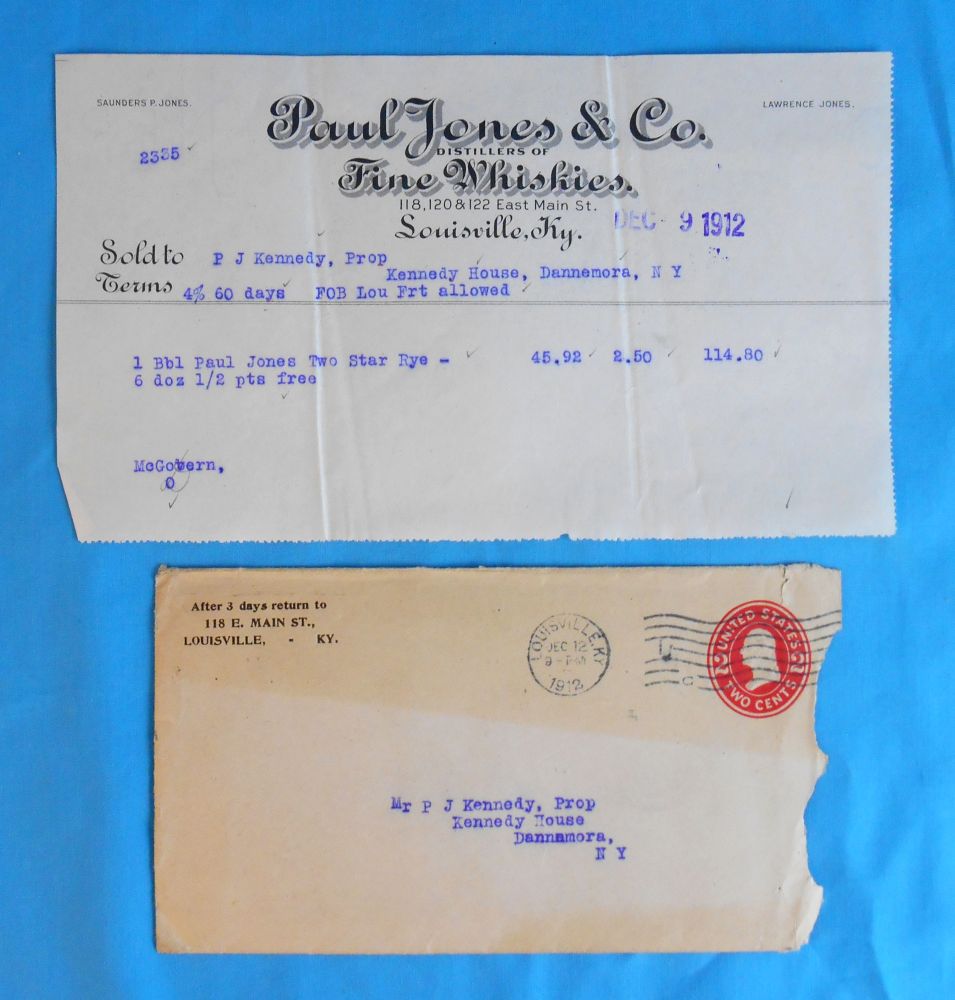 SAUNDERS P. JONES.
LAWRENCE JONES.
Paul Jones & Co.
DISTILLERS OF
Fine Whiskies.
118,120 & 122 East Main St.
Louisville, Ky.
2335
DEC 9 1912
Sold to P J Kennedy, Prop
Kennedy House, Dannemora, N Y
Terms 4% 60 days FOB Lou Frt allowed
1 Bbl Paul Jones Two Star Rye - 45.92 2.50 114.80
6 doz 1/2 pts free
McGovern,
O
After 3 days return to
118 E. MAIN ST.,
LOUISVILLE, - KY.
LOUISVILLE, KY
DEC 12
1912
UNITED STATES
2 2
TWO CENTS
Mr P J Kennedy, Prop
Kennedy House
Dannamora,
N Y